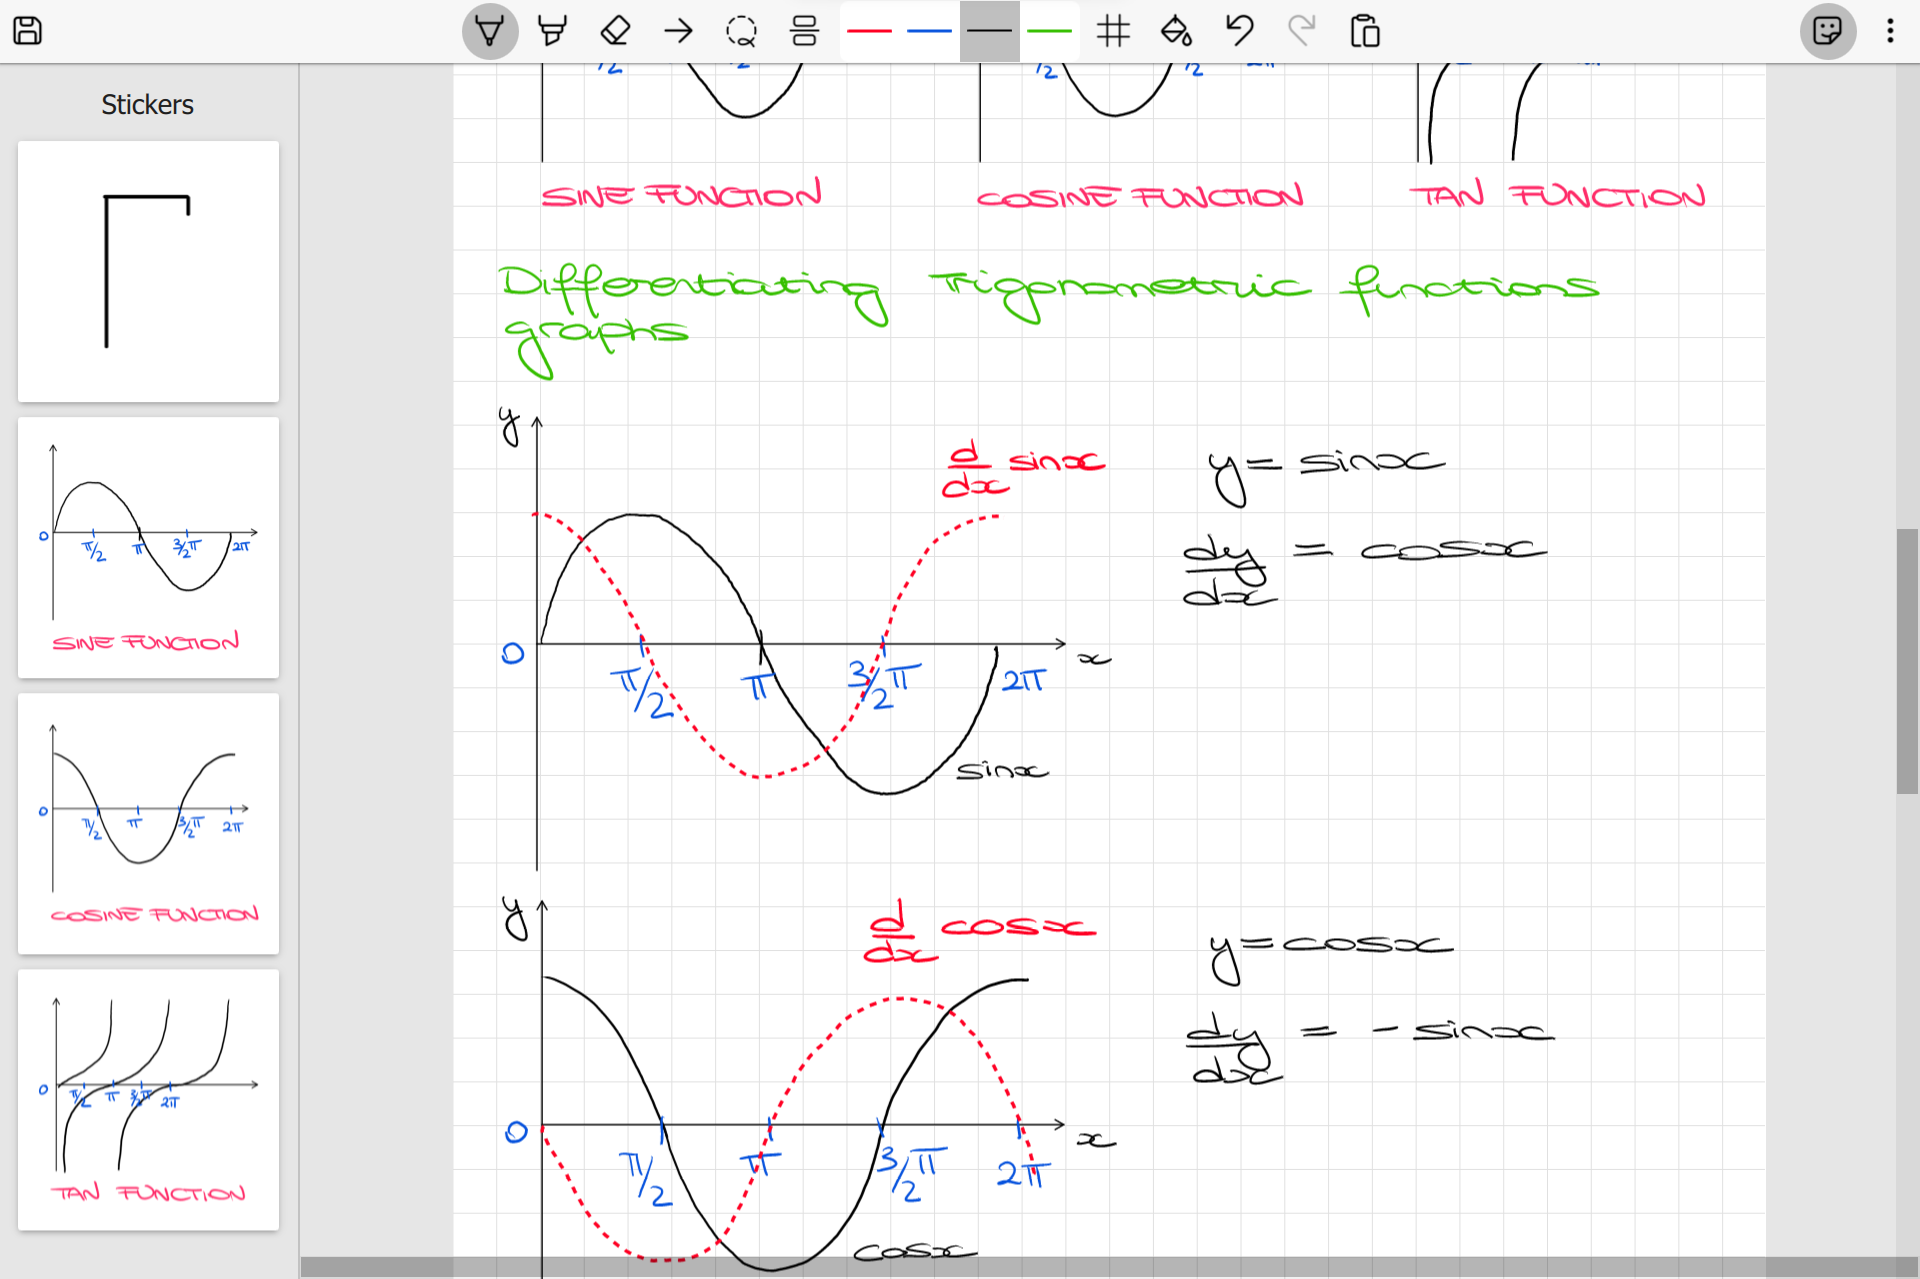 Stickers
0 π/2 π 3/2π 2π
SINE FUNCTION
0 π/2 π 3/2π 2π
COSINE FUNCTION
0 π/2 π 3/2π 2π
TAN FUNCTION
SINE FUNCTION COSINE FUNCTION TAN FUNCTION
Differentiating Trigonometric functions
graphs
y
d/dx sinx
y = sinx
dy/dx = cosx
0 π/2 π 3/2π 2π x
sinx
y
d/dx cosx
y = cosx
dy/dx = - sinx
0 π/2 π 3/2π 2π x
cosx